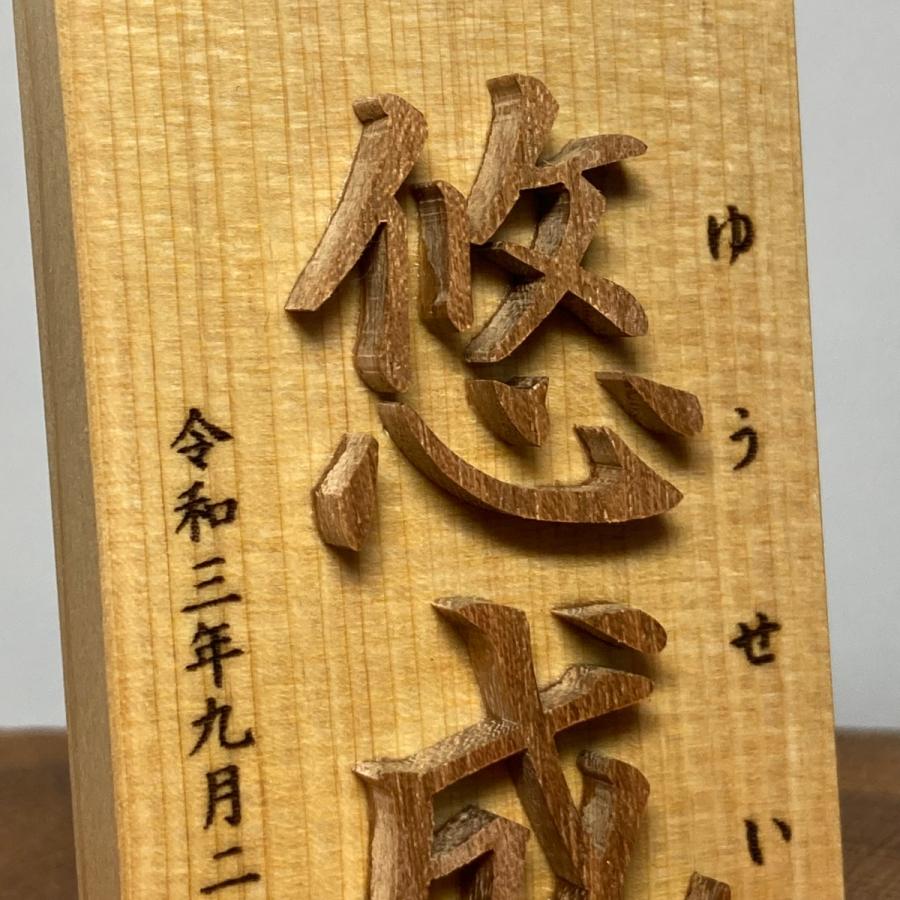 ゆうせい
悠成
令和三年九月二